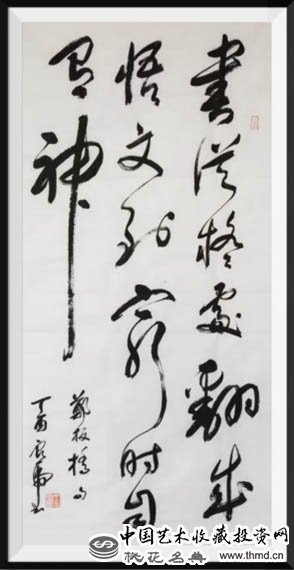 書從疑處翻成
悟文到窮时自
有神
鄭板橋句
丁酉
中国艺术收藏投资网
桃花名典 www.thmd.cn